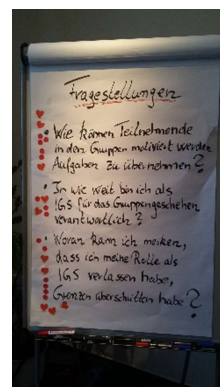 Fragestellungen
Wie können Teilnehmende
in den Gruppen motiviert werden
Aufgaben zu übernehmen?
In wie weit bin ich als
IGS für das Gruppengeschehen
verantwortlich?
Woran kann ich merken,
dass ich meine Rolle als
IGS verlassen habe,
Grenzen überschritten habe?